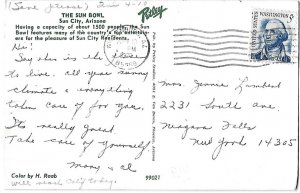 THE SUN BOWL
Sun City, Arizona
Having a capacity of about 7500 people, the Sun
Bowl features many of the country's top entertain-
ers for the pleasure of Sun City Residents.
Petley
Hi!
Say this is the place
to live. All year sunny
climate & everything
taken care of for you.
It's really great.
Take care of yourself
Mary & Al
Color by H. Raab
99021
WASHINGTON
5¢
Mrs. Jennie Lambert
2231 South Ave,
Niagara Falls
New York 14305